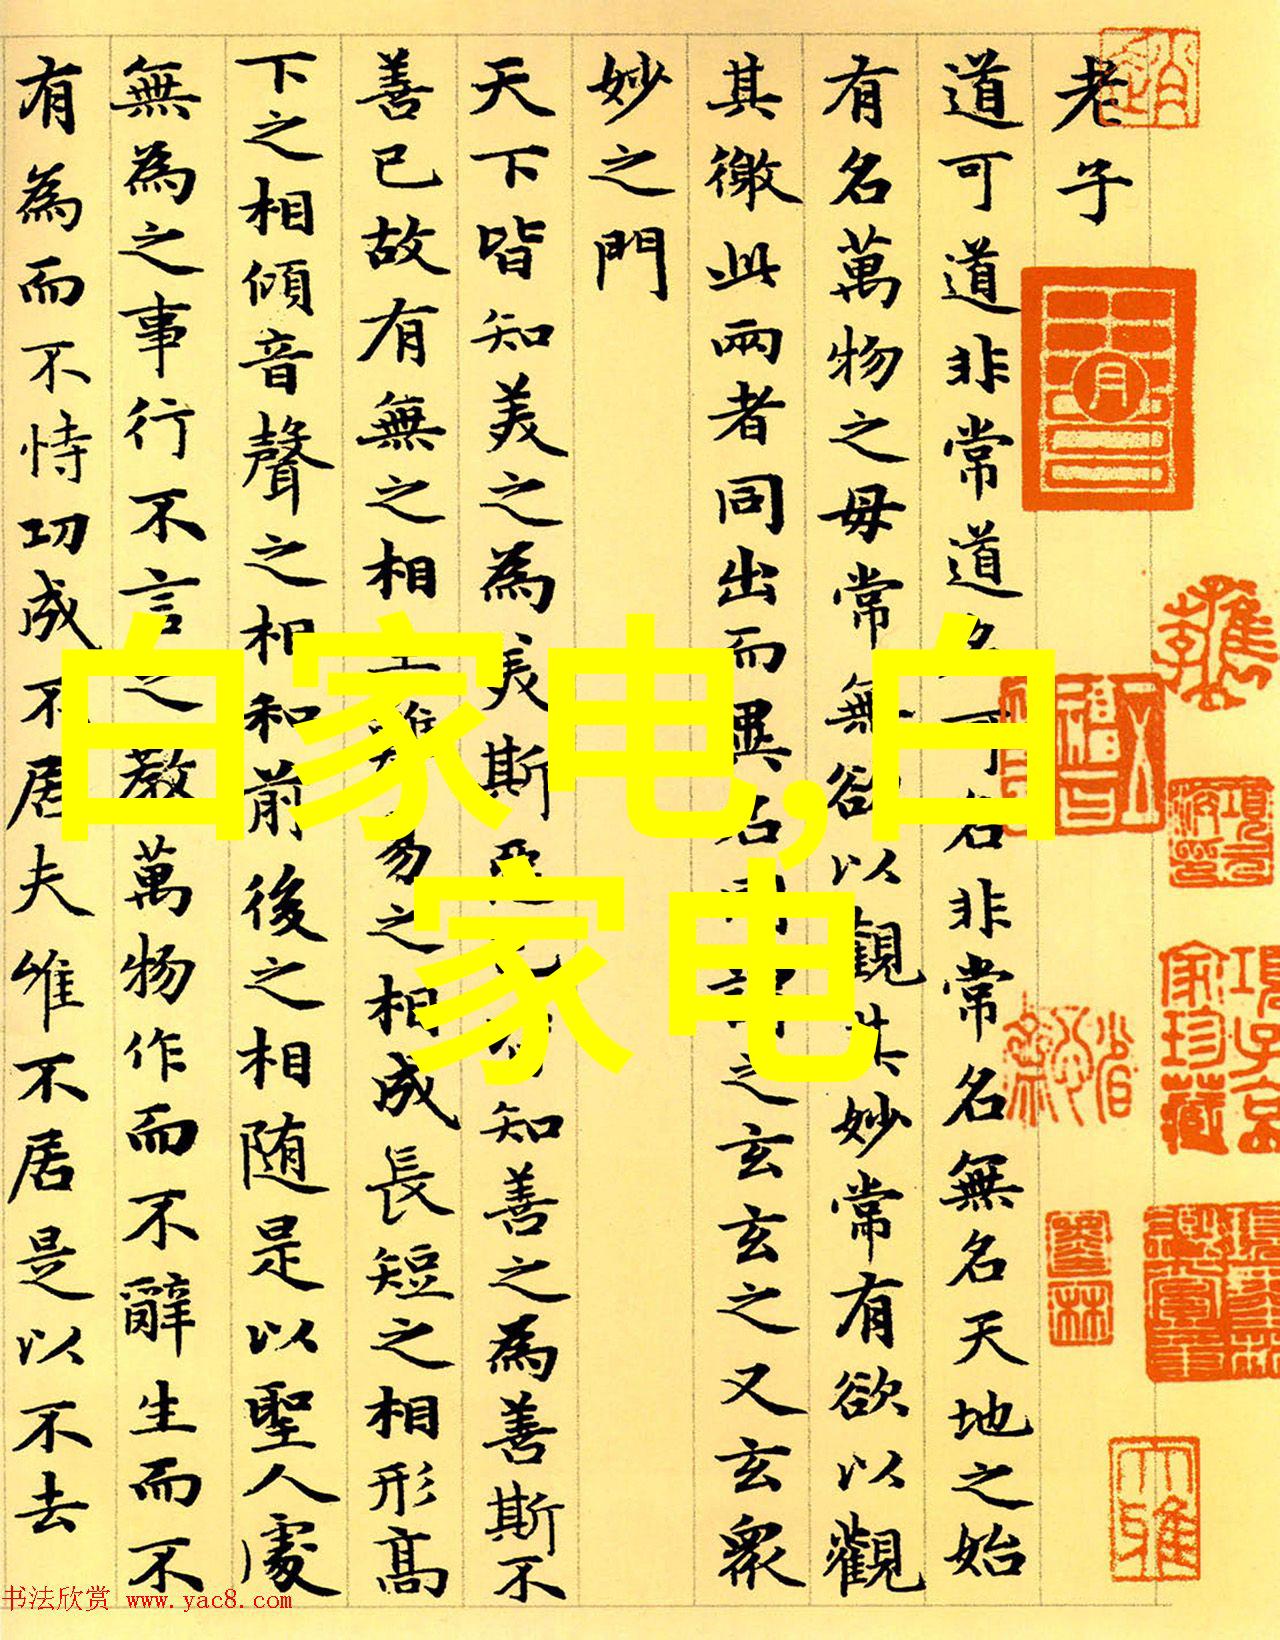 老子
道可道非常道名可名非常名無名天地之始
有名萬物之母常無欲以觀其妙常有欲以觀
其徼此兩者同出而異名同謂之玄玄之又玄衆
妙之門
天下皆知美之為美斯惡已皆知善之為善斯不
善已故有無之相生難易之相成長短之相形髙
下之相傾音聲之相和前後之相随是以聖人處
無為之事行不言之教萬物作而不辭生而不
有為而不恃功成不居夫唯不居是以不去
白家电,白
家电
項子京
家珍藏
大雅
书法欣赏 www.yac8.com